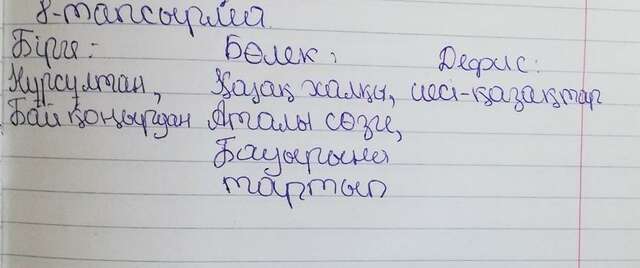 8-тапсырма
Бірге: Бөлек: Дефис:
Нұрсұлтан, Қазақ халқы, иесі-қазақтар
Байқоңырдан Аталы сөзге,
Бауырына
тартып